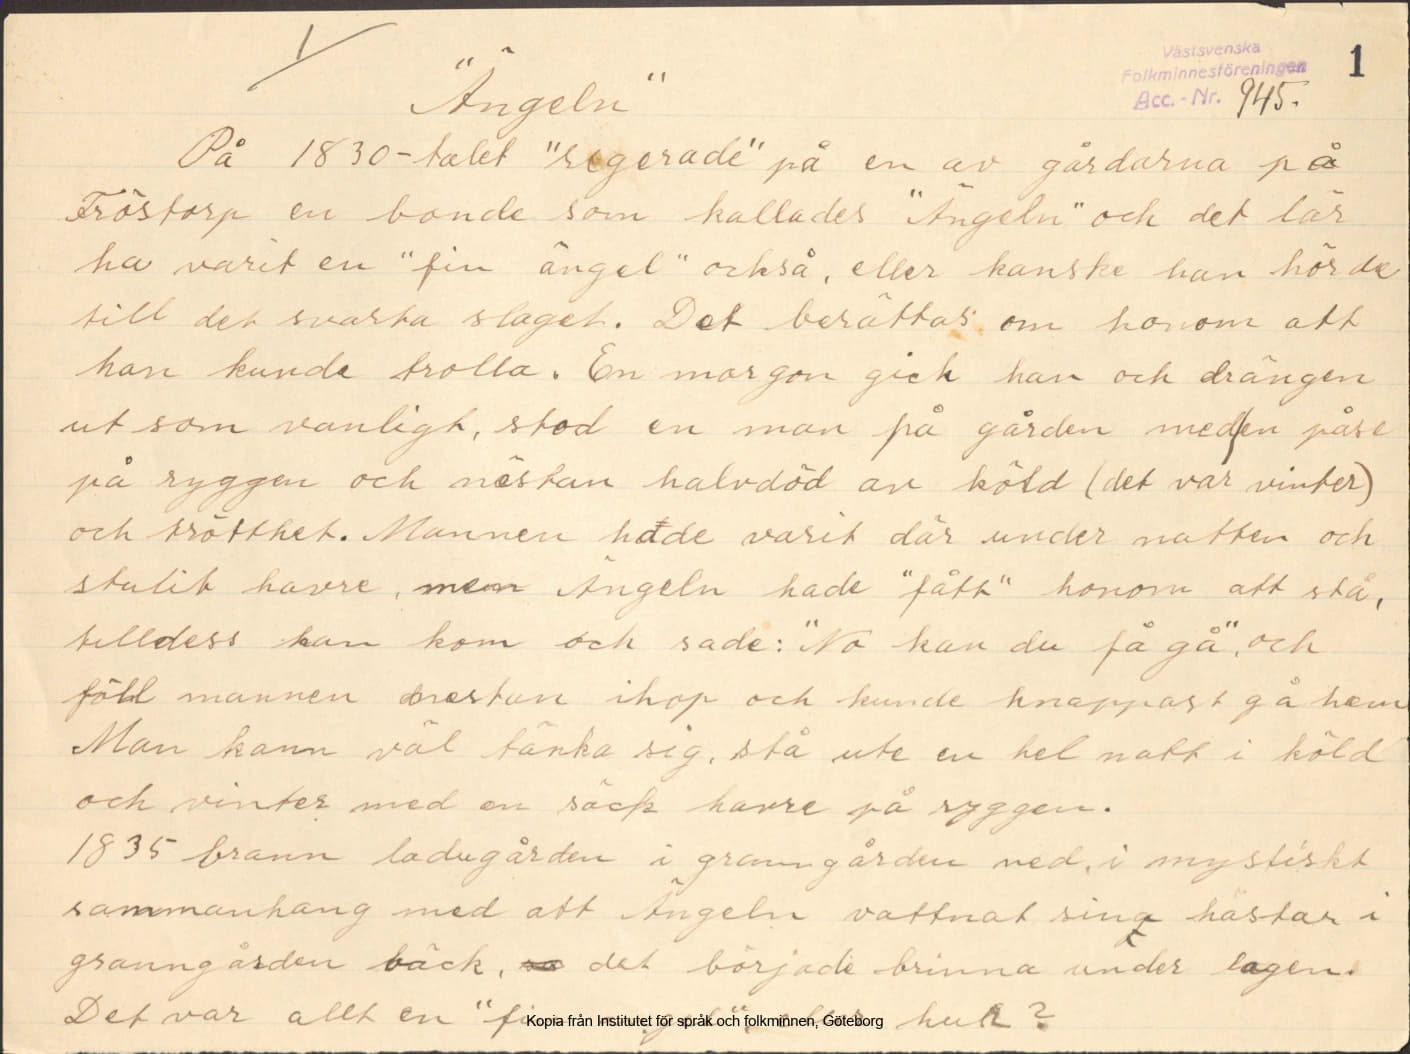 1
Västsvenska
Folkminnesföreningen
Acc.-Nr. 945.
"Ängeln"
På 1830-talet "regerade" på en av gårdarna på
Tröstorp en bonde som kallades "Ängeln" och det lär
ha varit en "fin ängel" också, eller kanske han hörde
till det svarta slaget. Det berättas om honom att
han kunde trolla. En morgon gick han och drängen
ut som vanligt, stod en man på gården med en påse
på ryggen och nästan halvdöd av köld (det var vinter)
och trötthet. Mannen hade varit där under natten och
stulit havre, men Ängeln hade "fått" honom att stå,
tilldess han kom och sade: "No kan du få gå", och
föll mannen nästan ihop och kunde knappast gå hem
Man kann väl tänka sig, stå ute en hel natt i köld
och vinter med en säck havre på ryggen.
1835 brann ladugården i granngården ned, i mystiskt
sammanhang med att Ängeln vattnat sina hästar i
granngården bäck, det började brinna under lagen.
Det var allt en "fin ängel", eller hur?
Kopia från Institutet för språk och folkminnen, Göteborg